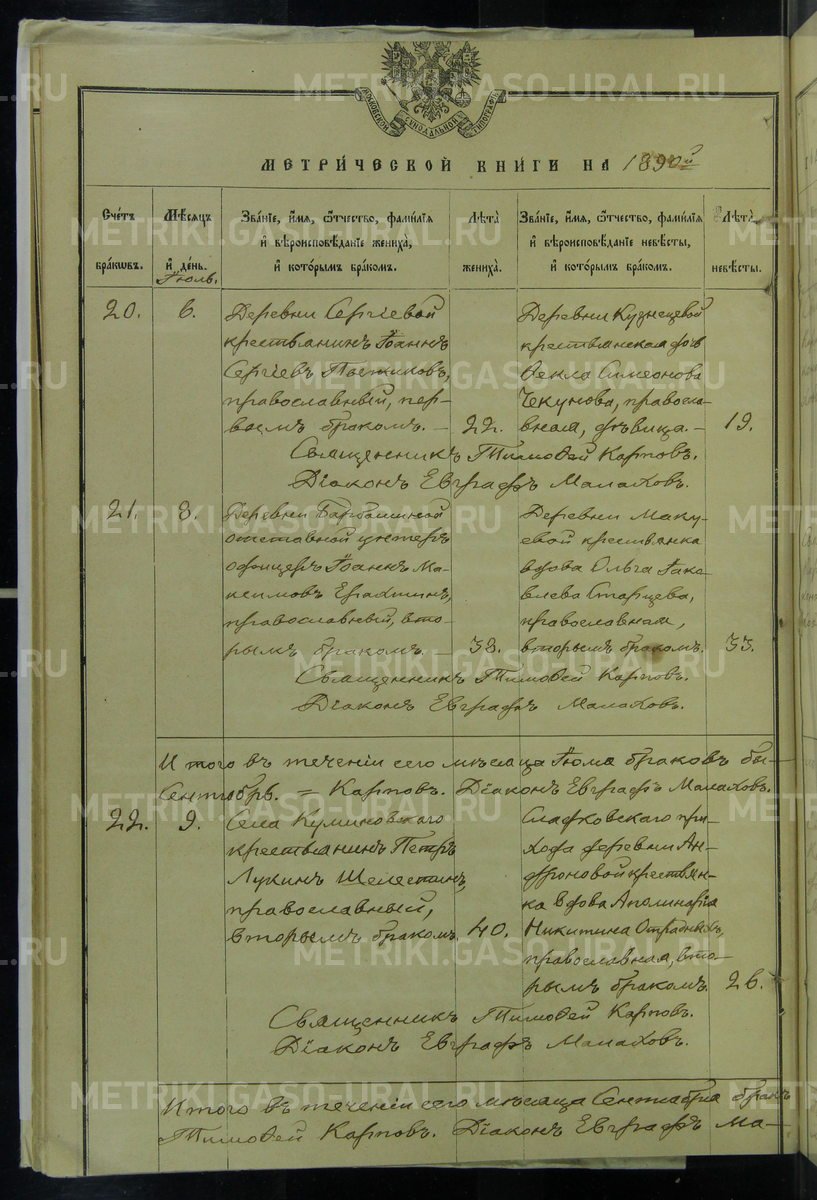 МОСКОВСКОЙ СѴНОДАЛЬНОЙ ТИПОГРАФІИ
МЕТРИ́ЧЕСКОЙ КНИ́ГИ НА 1890й
Сче́тъ бра́кѡвъ.
Мѣ́сяцъ и҆ де́нь.
Зва́нїе, и҆́мя, ѻ҆́тчество, фами́лїя и҆ вѣроисповѣ́данїе жениха̀, и҆ кото́рымъ бра́комъ.
Лѣта̀ жениха̀.
Зва́нїе, и҆́мя, ѻ҆́тчество, фами́лїя и҆ вѣроисповѣ́данїе невѣ́сты, и҆ кото́рымъ бра́комъ.
Лѣта̀ невѣ́сты.
Іюль.
20.
6.
Деревни Сергіевой
крестьянинъ Іоаннъ
Сергіевъ Постиковъ,
православный, пер-
вымъ бракомъ. —
22.
Деревни Кузнецовой
крестьянская дочь
Ѳекла Симеонова
Чекунова, правосла-
вная, дѣвица. —
19.
Священникъ Тимоѳей Карповъ.
Діаконъ Евграфъ Малаховъ.
21.
8.
Деревни
отставной унтеръ
офицеръ Іоаннъ Ма-
ксимовъ Ерахтинъ,
православный, вто-
рымъ бракомъ. —
38.
Деревни Маку-
евой крестьянка
вдова Ольга Іако-
влева Старцева,
православная,
вторымъ бракомъ.
33.
Священникъ Тимоѳей Карповъ.
Діаконъ Евграфъ Малаховъ.
Итого въ теченіи сего мѣсяца Іюля браковъ бы-
Сентябрь. = Карповъ. Діаконъ Евграфъ Малаховъ.
22.
9.
Села Куминовскаго
крестьянинъ Петръ
Лукинъ Шелестинъ,
православный,
вторымъ бракомъ.
40.
Сладковскаго при-
хода деревни Ан-
дроновой крестьян-
ка вдова Аполинарія
Никитина
православная, вто-
рымъ бракомъ.
26.
Священникъ Тимоѳей Карповъ.
Діаконъ Евграфъ Малаховъ.
Итого въ теченіи сего мѣсяца Сентября бракъ
Тимоѳей Карповъ. Діаконъ Евграфъ Ма-
METRIKI.GASO-URAL.RU